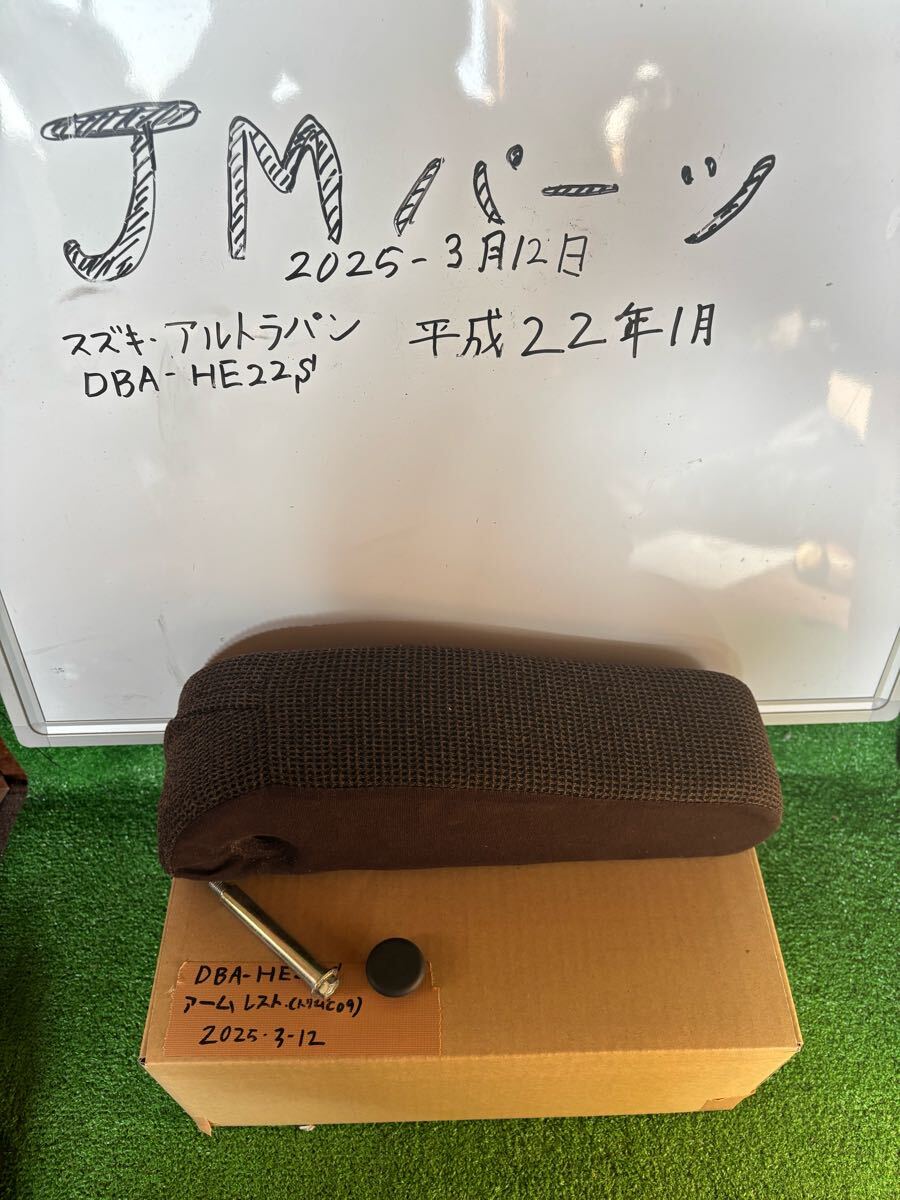 JMパーツ
2025-3月12日
スズキ・アルトラパン 平成22年1月
DBA-HE22S
DBA-HE
アームレスト
2025-3-12